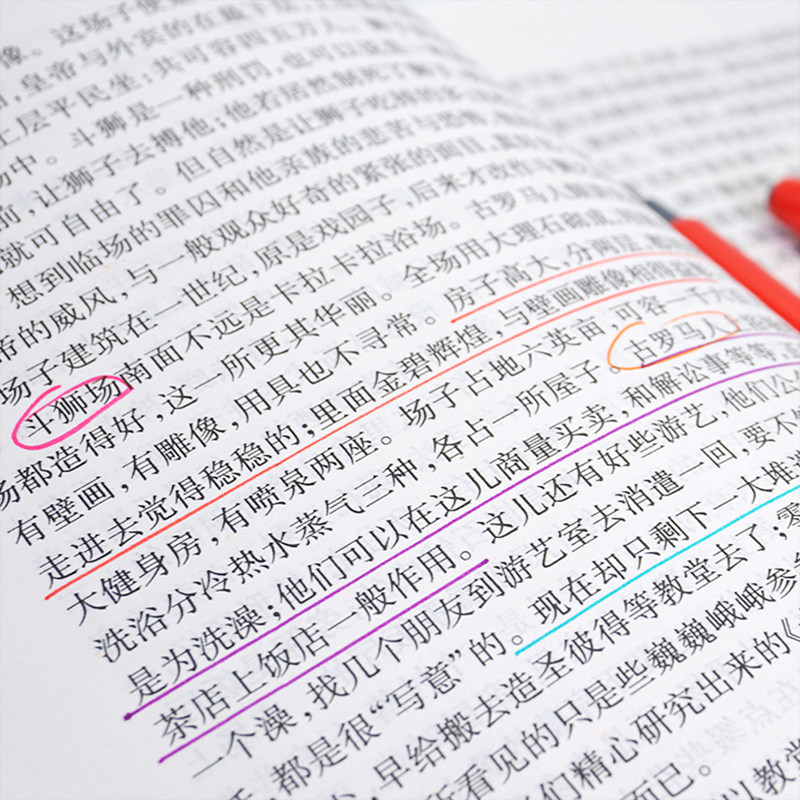 像。这场子便
皇帝与外宾的在最下层
上层平民坐；共可容四五万人。
场中。斗狮是一种刑罚，也可以说是
前，让狮子去搏他；他若居然制死了狮子
就可自由了。但自然是让狮子吃掉的多
想到临场的罪囚和他亲族的悲苦与恐怖
帝的威风，与一般观众好奇的紧张的面目
场子建筑在一世纪，原是戏园子，后来才改作
斗狮场南面不远是卡拉卡拉浴场。古罗马人
场都造得好，这一所更其华丽。全场用大理石砌成
有壁画，有雕像，用具也不寻常。房子高大，分两层
走进去觉得稳稳的；里面金碧辉煌，与壁画雕像相得益彰
大健身房，有喷泉两座。场子占地六英亩，可容一千六
洗浴分冷热水蒸气三种，各占一所屋子。古罗马人
是为洗澡；他们可以在这儿商量买卖，和解讼事等等，
茶店上饭店一般作用。这儿还有好些游艺，他们公
一个澡，找几个朋友到游艺室去消遣一回，要不
都是很“写意”的。现在却只剩下一大堆
早给搬去造圣彼得等教堂去了；零
所看见的只是些巍巍峨峨参
们精心研究出来的《
而已。
以教堂